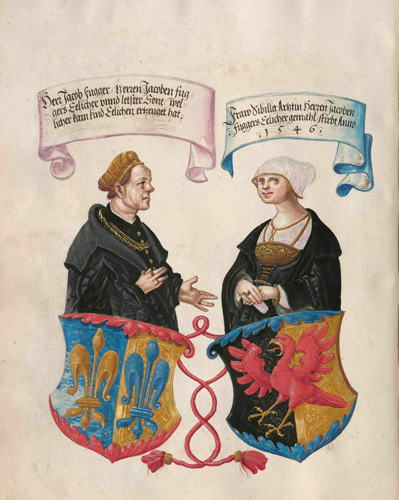 Herr Jacob Fugger Herren Jacoben fug
gers Eelicher vnnd letster Sone wel
licher kain kind Eelichen erzeuget hat.
Fraw Sibilla Artztin Herren Jacoben
Fuggers Eelicher gemahl stirbt Anno
1546